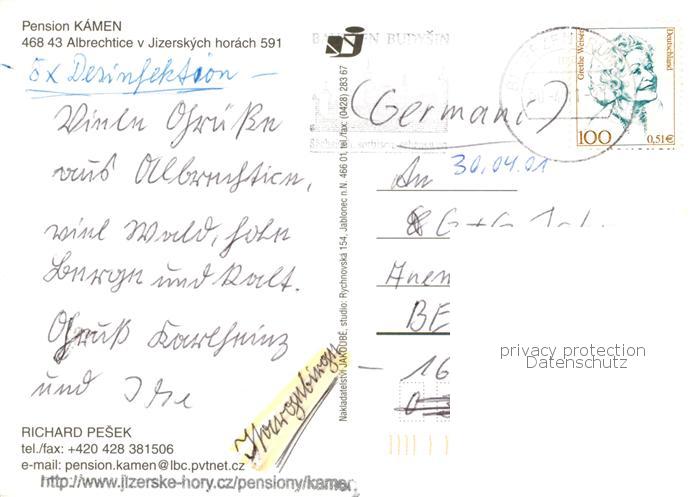 Pension KÁMEN
468 43 Albrechtice v Jizerských horách 591
5x Desinfektion –
Viele Grüße
aus Albrechtice,
viel Wald, hohe
Berge und kalt.
Gruß Karlheinz
und
RICHARD PEŠEK
tel./fax: +420 428 381506
e-mail: pension.kamen@lbc.pvtnet.cz
http://www.jizerske-hory.cz/pensiony/kamen
Isergebirge
Nakladatelství JAKOUBĚ, studio: Rychnovská 154, Jablonec n.N. 466 01, tel./fax: (0428) 283 67
BAUTZEN BUDYŠIN
(Germani)
Grethe Weiser
Deutschland
100
0,51€
30.04.01
An
G+G
BE
16
privacy protection
Datenschutz